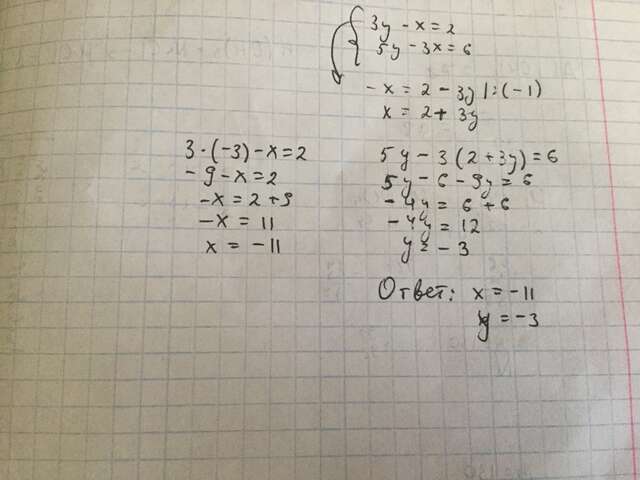 3y - x = 2
5y - 3x = 6
- x = 2 - 3y |:(-1)
x = 2 + 3y
5y - 3(2 + 3y) = 6
5y - 6 - 9y = 6
- 4y = 6 + 6
- 4y = 12
y = - 3
3 · (-3) - x = 2
- 9 - x = 2
- x = 2 + 9
- x = 11
x = - 11
Ответ: x = - 11
y = - 3